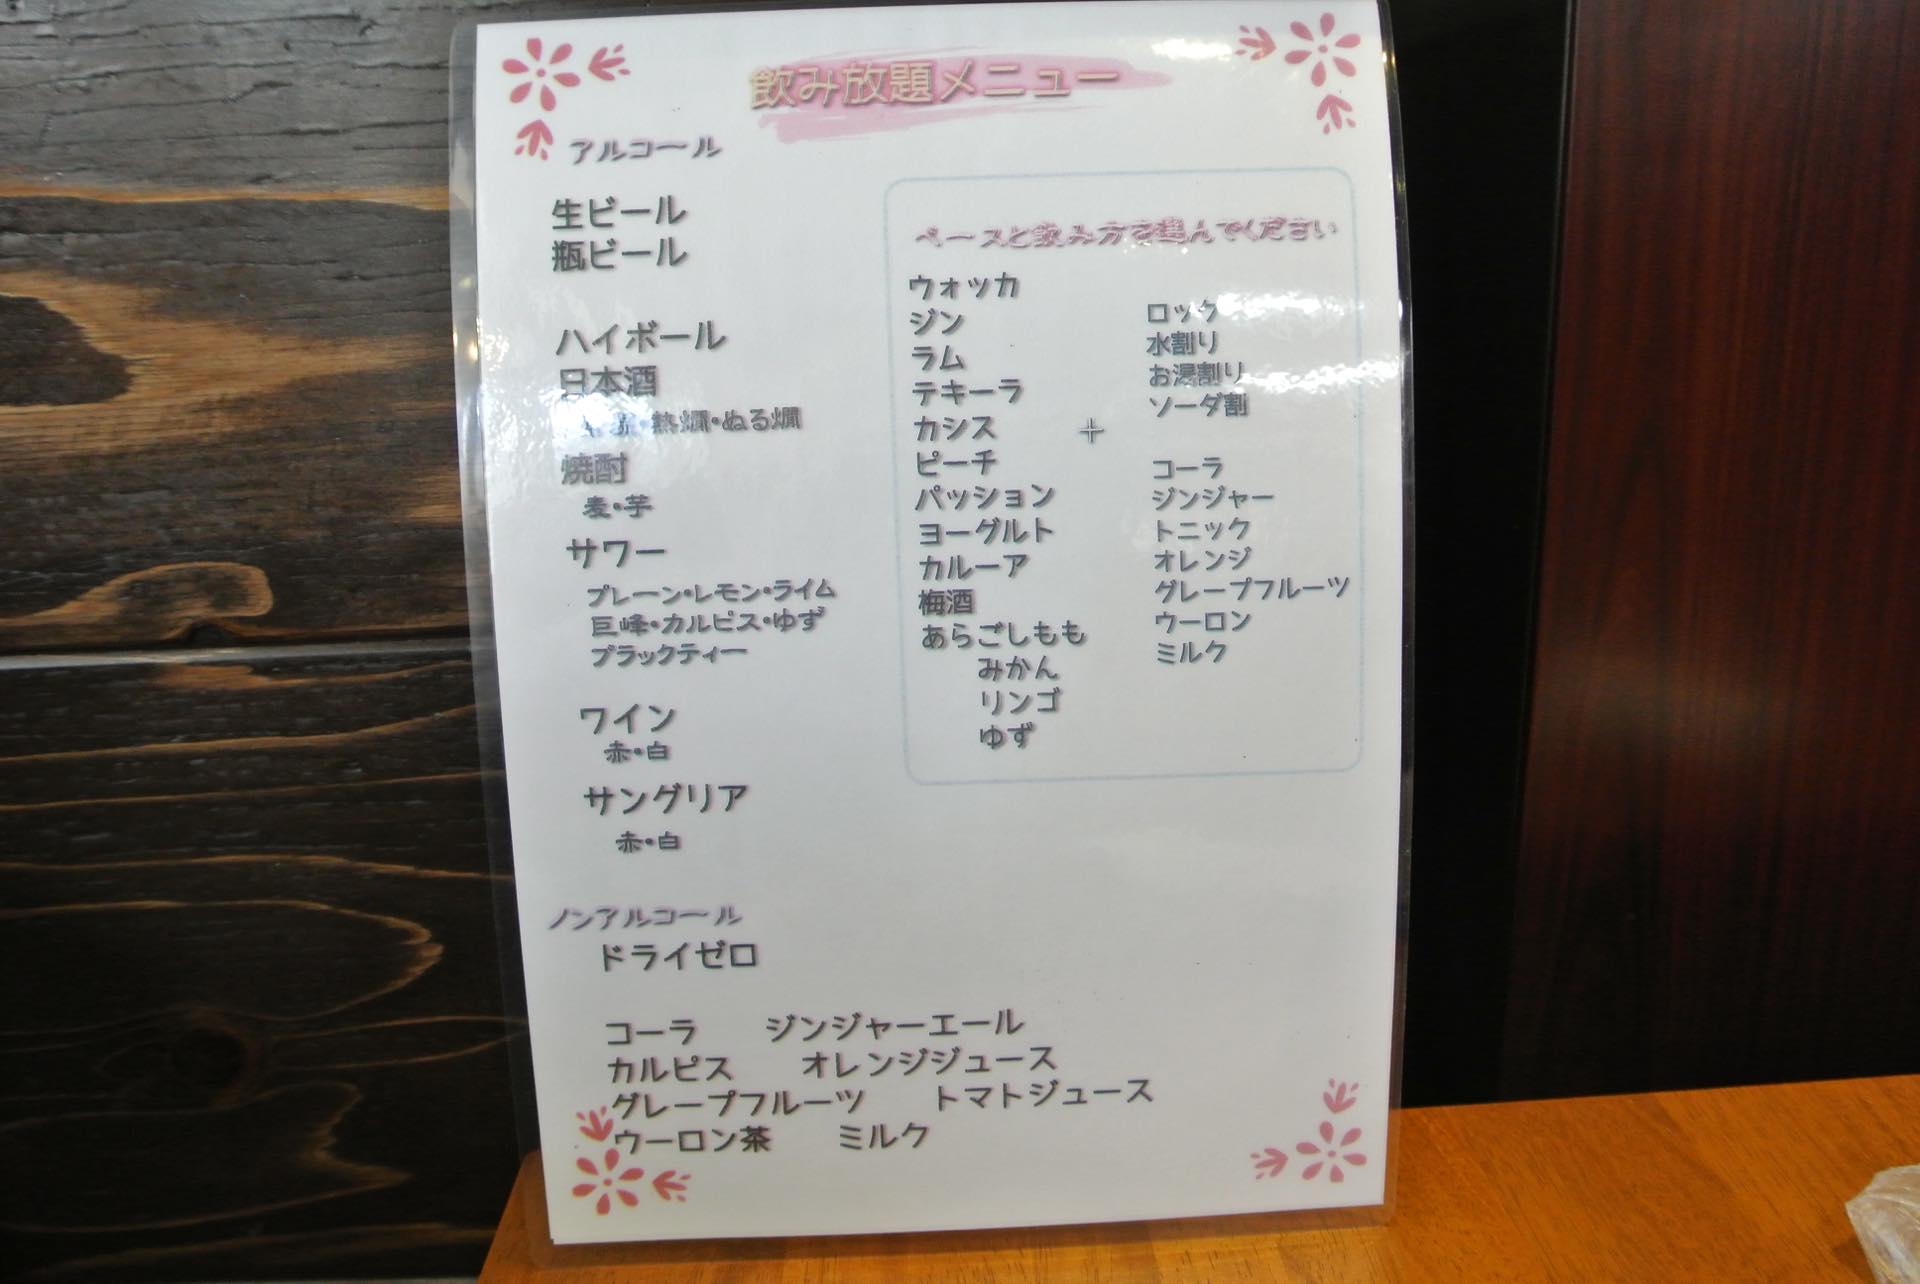 飲み放題メニュー
アルコール
生ビール
瓶ビール
ハイボール
日本酒
・熱燗・ぬる燗
焼酎
麦・芋
サワー
プレーン・レモン・ライム
巨峰・カルピス・ゆず
ブラックティー
ワイン
赤・白
サングリア
赤・白
ベースと飲み方を選んでください
ウォッカ
ジン
ラム
テキーラ
カシス
ピーチ
パッション
ヨーグルト
カルーア
梅酒
あらごしもも
みかん
リンゴ
ゆず
+
ロック
水割り
お湯割り
ソーダ割
コーラ
ジンジャー
トニック
オレンジ
グレープフルーツ
ウーロン
ミルク
ノンアルコール
ドライゼロ
コーラ　ジンジャーエール
カルピス　オレンジジュース
グレープフルーツ　トマトジュース
ウーロン茶　ミルク